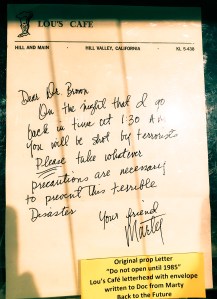 LOU'S CAFE
HILL AND MAIN · HILL VALLEY, CALIFORNIA · KL 5-438
Dear Dr. Brown
On the night that I go
back in time at 1:30 AM
you will be shot by terrorists
Please take whatever
precautions are necessary
to prevent this terrible
Disaster
Your friend
Marty
Original prop Letter
"Do not open until 1985"
Lou's Café letterhead with envelope
written to Doc from Marty
Back to the Future